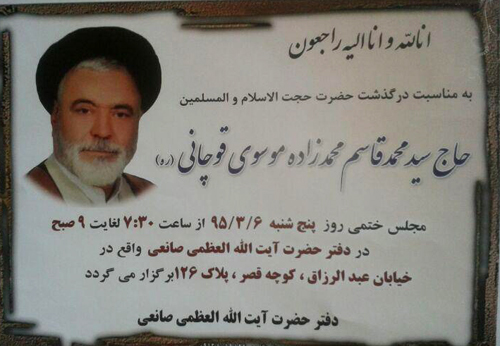 انالله و انا الیه راجعون
به مناسبت درگذشت حضرت حجت الاسلام و المسلمین
حاج سید محمد قاسم محمدزاده موسوی قوچانی (ره)
مجلس ختمی روز پنج شنبه ۹۵/۳/۶ از ساعت ۷:۳۰ لغایت ۹ صبح
در دفتر حضرت آیت الله العظمی صانعی واقع در
خیابان عبد الرزاق، کوچه قصر، پلاک ۱۲۶ برگزار می گردد
دفتر حضرت آیت الله العظمی صانعی